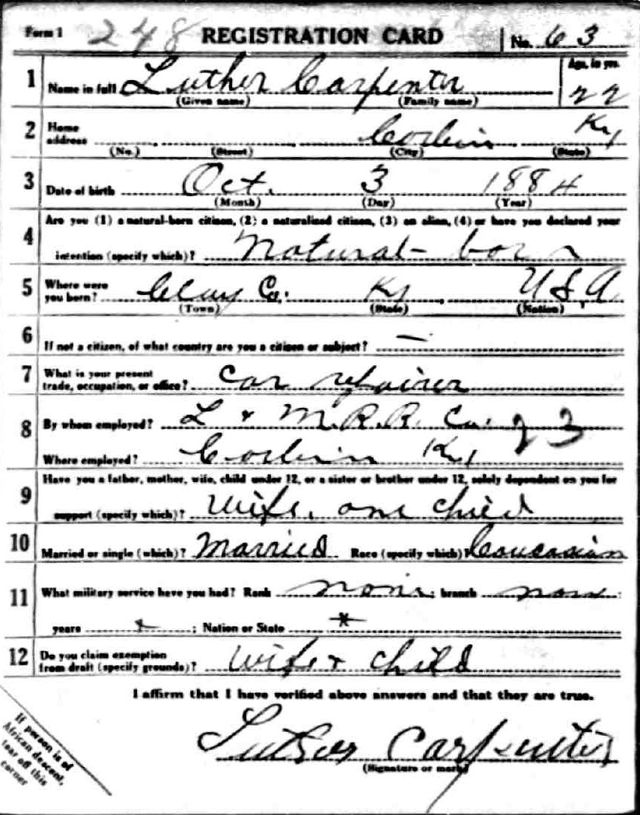 Form 1 248 REGISTRATION CARD No. 63
1 Name in full Luther Carpenter Age, in yrs. 22
(Given name) (Family name)
2 Home address Corbin Ky
(No.) (Street) (City) (State)
3 Date of birth Oct. 3 1884
(Month) (Day) (Year)
4 Are you (1) a natural-born citizen, (2) a naturalized citizen, (3) an alien, (4) or have you declared your
intention (specify which)? Natural-born
5 Where were you born? Clay Co. Ky U.S.A
(Town) (State) (Nation)
6 If not a citizen, of what country are you a citizen or subject? —
7 What is your present trade, occupation, or office? car repairer
8 By whom employed? L & N. R. R. Co. 23
Where employed? Corbin Ky
9 Have you a father, mother, wife, child under 12, or a sister or brother under 12, solely dependent on you for
support (specify which)? Wife, one child
10 Married or single (which)? Married Race (specify which)? Caucasian
11 What military service have you had? Rank none; branch none
years x; Nation or State x
12 Do you claim exemption from draft (specify grounds)? wife & child
I affirm that I have verified above answers and that they are true.
Luther Carpenter
(Signature or mark)
If person is of
African descent,
tear off this
corner